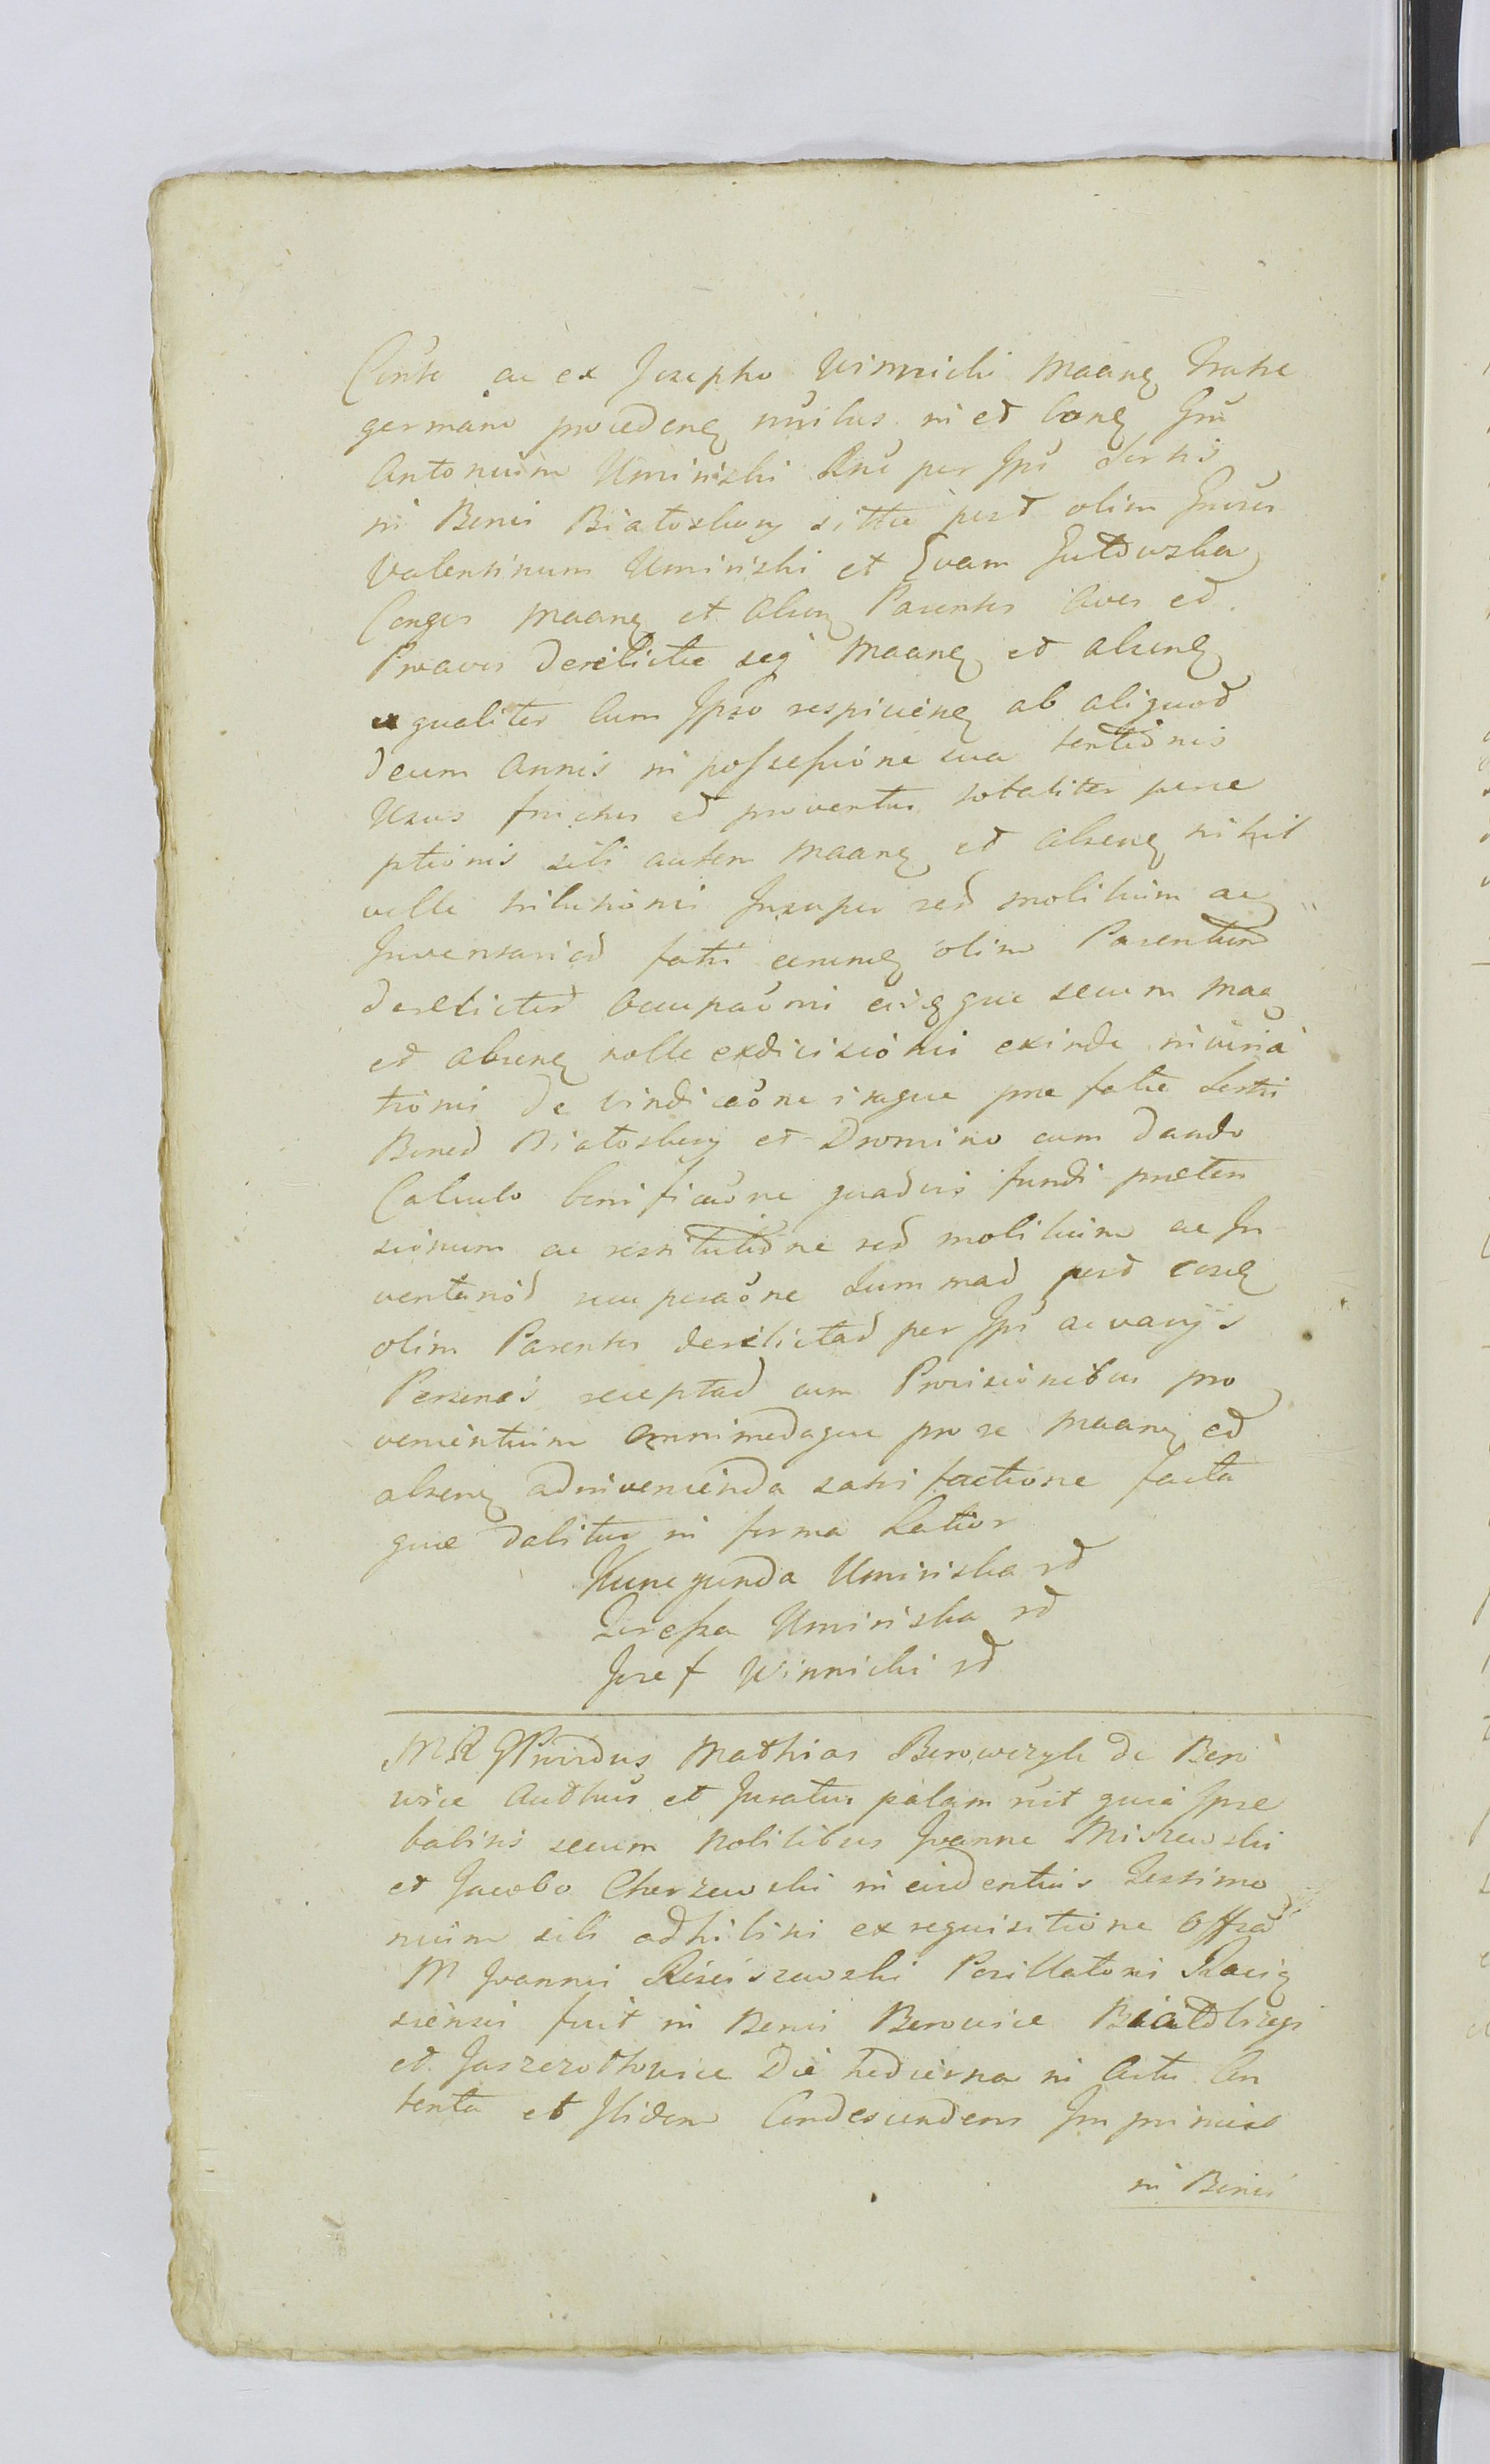 Conte ac ex Josepho Winnicki Maanę Fratre
germano procedenę nũibus in et bonę Gnũ
Antonium Uminski Rnũ per Ipũ Sortis
in Bonis Białoskury sittũ post olim Gnosos
Valentinum Uminski et Evam Gutowska
Conges Maanę et Absenę Parentes Aves et
Proaves derelictæ seq Maanę et absenę
æqualiter cum Ipso respicienę ab aliquod
decem Annis in possessione sua tentionis
Usus fructus et proventus totaliter perce
ptionis sibi autem Maanę et absenę nihil
velle tributionis Insuper red mobilium ac
Inventaried fati eorumę olim Parentum
derelicted occupaõnis eisque secum Maaę
et absenę nolle exdivisionis exinde injuria
tionis de vindicaõne isque præ fatæ Sortis
Boned Białoskury et Dromino cum dando
Calculo bonificaõne quadvis fundi præten
sionum ac restitutione red mobilium ac In
ventariod recuperaõne Summad post eosdę
olim Parentes derelictad per Ipũ ac varijs
Personis receptad cum Provisionibus pro
venientium omnimodaque pro se Maanę et
absenę adinvenienda satisfactione facta
que dabitur in forma Latior
Kunegunda Uminska
Uminska
Jozef Winnicki
Mathias Borowczyk de Boro
wice Authũs et Juratus palam rũit quia Ipse
habitis secum Nobilibus Joanne Miszewski
et Jacobo Chorzewski in evidentius Testimo
nium sibi adhibitis ex requisitione Offsa
M Joannis Rościszewski Pocillatoris Raciąż
siensis fuit in Bonis Borowice
et die hodierna in Actu Con
tenta et Ibidem Condescendens Imprimis
in Bonis